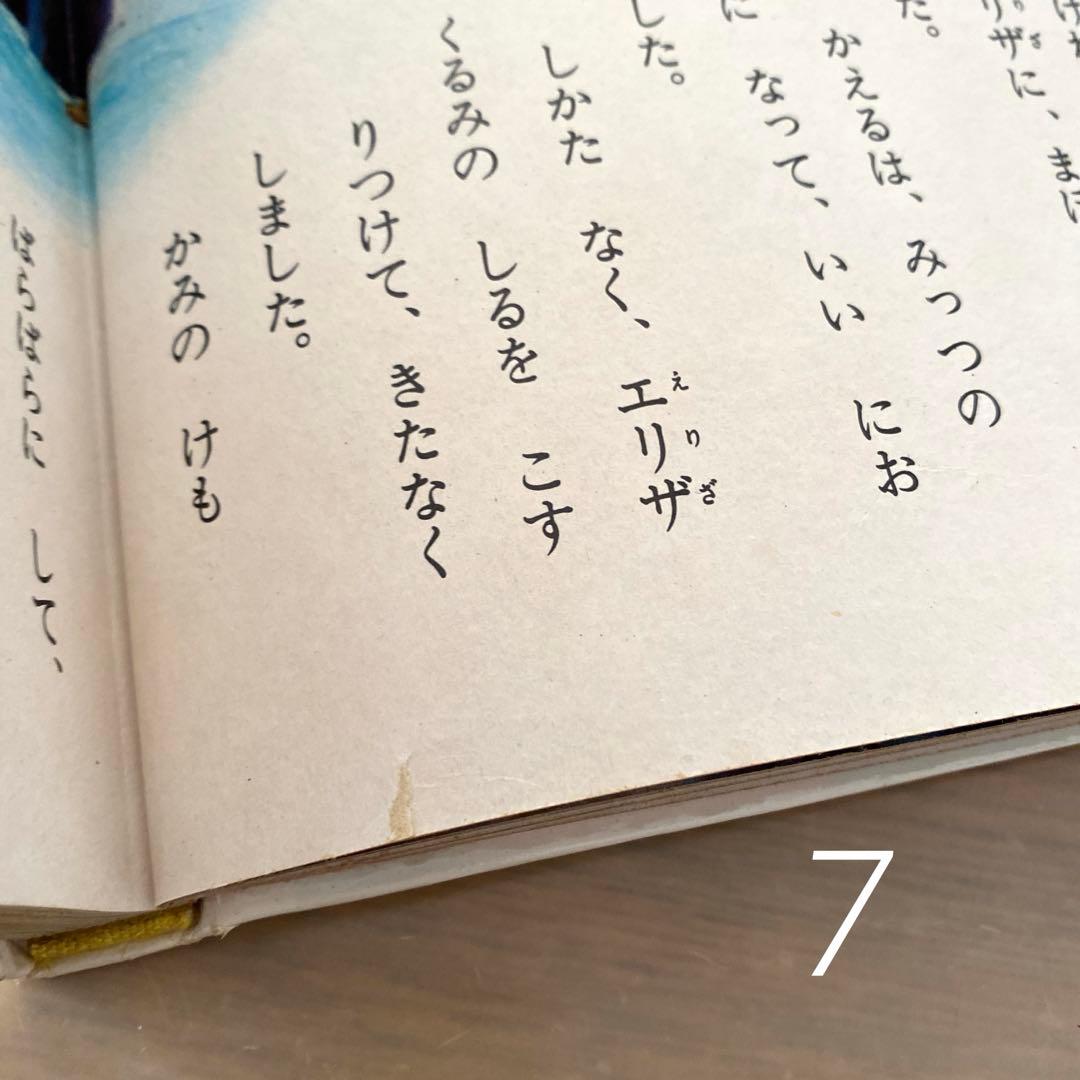 りザに、まに
た。
かえるは、みっつの
に なって、いい にお
した。
しかた なく、エリザ
えりざ
くるみの しるを こす
りつけて、きたなく
しました。
かみの けも
ばらばらに して、
7